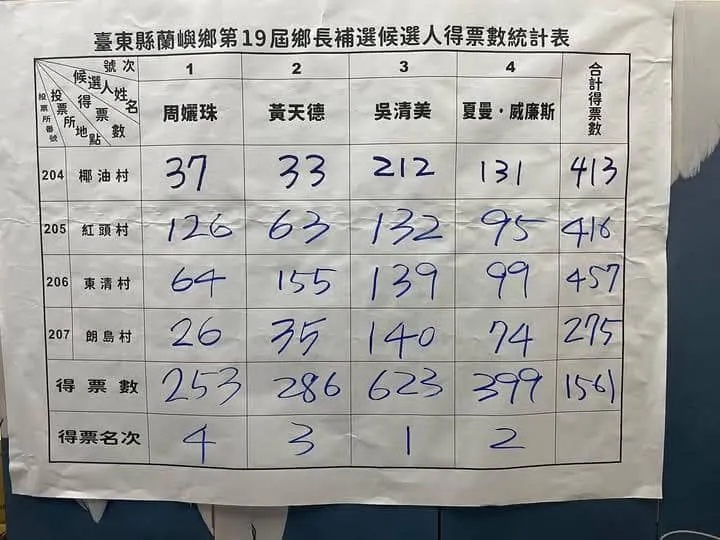 臺東縣蘭嶼鄉第19屆鄉長補選候選人得票數統計表
號次 1 2 3 4 合計得票數
候選人姓名 得票數 投票所地點 投票所番號 周孋珠 黃天德 吳清美 夏曼·威廉斯
204 椰油村 37 33 212 131 413
205 紅頭村 126 63 132 95 416
206 東清村 64 155 139 99 457
207 朗島村 26 35 140 74 275
得票數 253 286 623 399 1561
得票名次 4 3 1 2